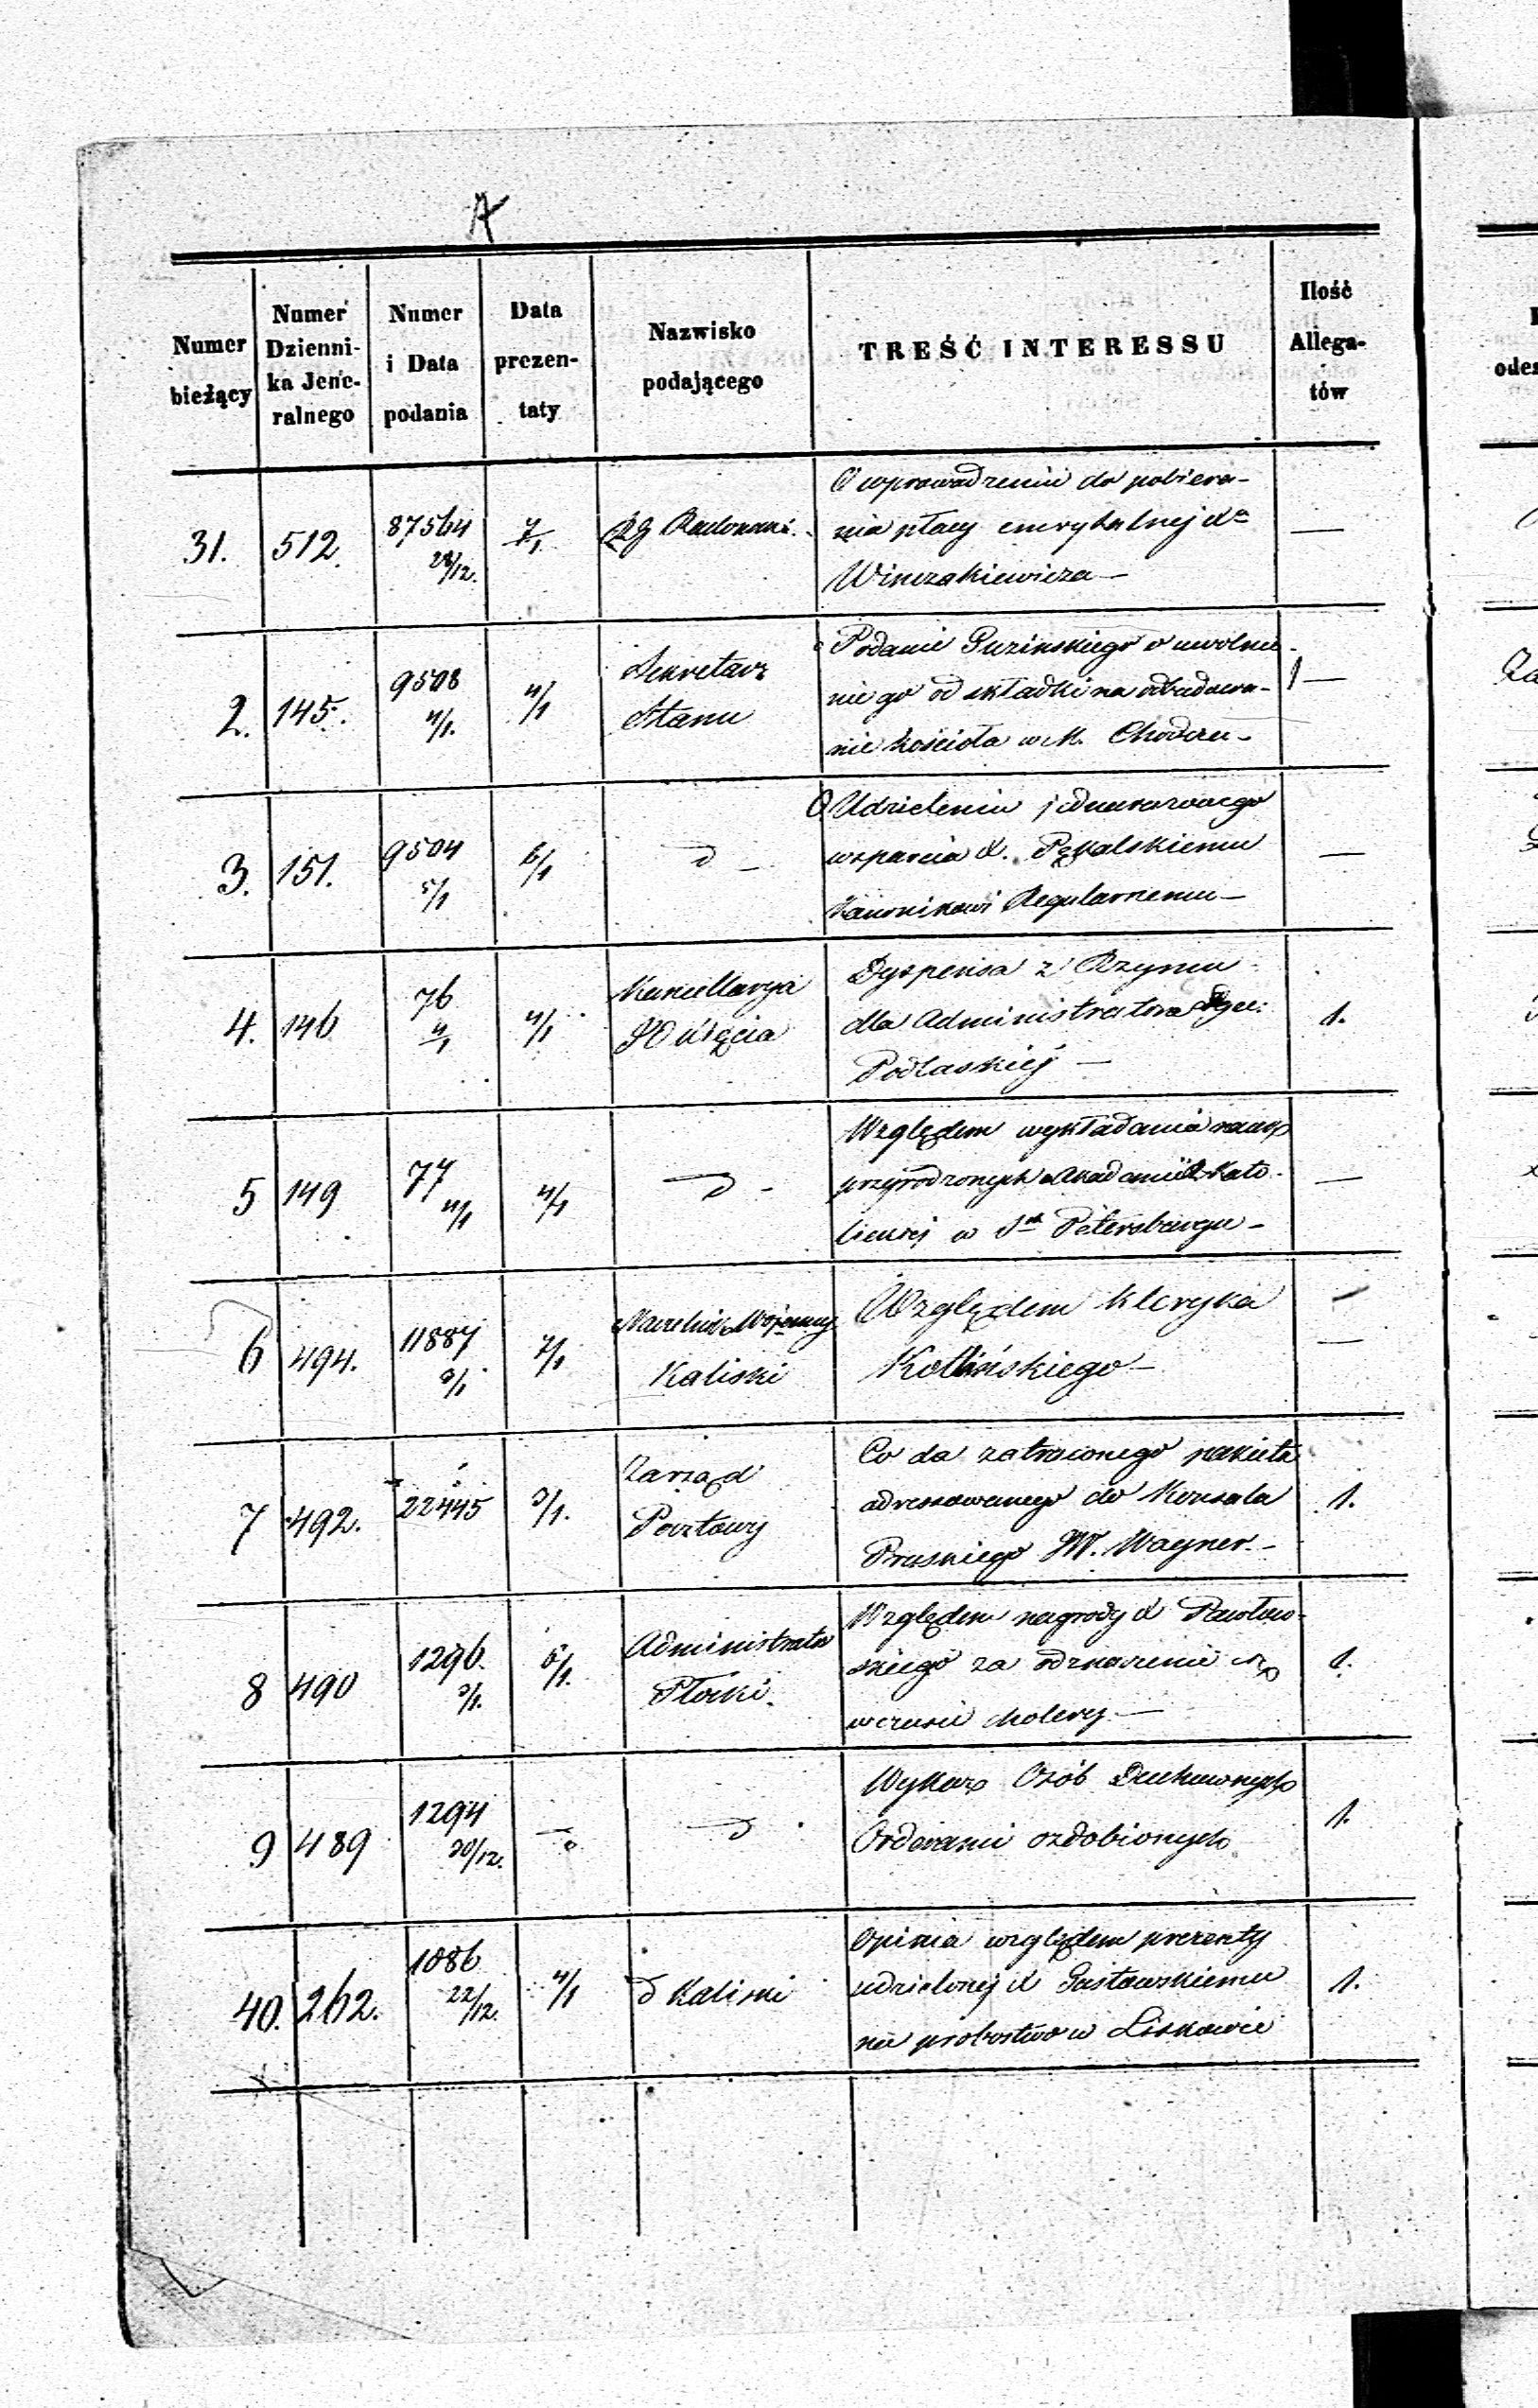 A
Numer bieżący
Numer Dzienni-ka Jene-ralnego
Numer i Data podania
Data prezen-taty
Nazwisko podającego
TREŚĆ INTERESSU
Ilość Allega-tów
31. 512. 87564 28/12. 7/1 RG Radomski. O wprowadzeniu do pobiera-
nia płacy emerytalnej Xa —
Winczakiewicza —
2. 145. 9508 4/1. 4/1 Sekretarz Podanie Puzinskiego o uwolnie- 1 —
Stanu nie go od składki na odbudowa-
nie kościoła w M. Chodczu —
3. 151. 9504 5/1 6/1 d — O Udzieleniu jednorazowego
wsparcia X. Pękalskiemu —
Kanonikowi Regularnemu —
4. 146 76 4/1 4/1 Kancellarya Dyspensa z Rzymu
JO Xięcia dla Administratora Dyec: 1.
Podlaskiej —
5 149 77 4/1 4/1 d — Względem wykładania nauk
przyrodzonych w Akademii R. Kato- —
lickiej w St Petersburgu —
6 494. 11887 3/1 7/1 Naczelnik Wojenny Względem kleryka —
Kaliski Kotlińskiego —
7 492. 22445 3/1. Zarząd Co do zatraconego pakietu
Pocztowy adressowanego do Konsula 1.
Pruskiego W. Wagner. —
8 490 1296. 3/1. 6/1. Administrator Względem nagrody X Pawłow-
Płocki. skiego za odznaczenie się 1.
w czasie cholery. —
9 489 1294 30/12. d Wykaz Osób Duchownych 1.
Orderami ozdobionych
40. 262. 1086 22/12. 4/1 d Kaliski Opinia względem prezenty
udzielonej X Gustawskiemu 1.
na probostwo w Liskowie